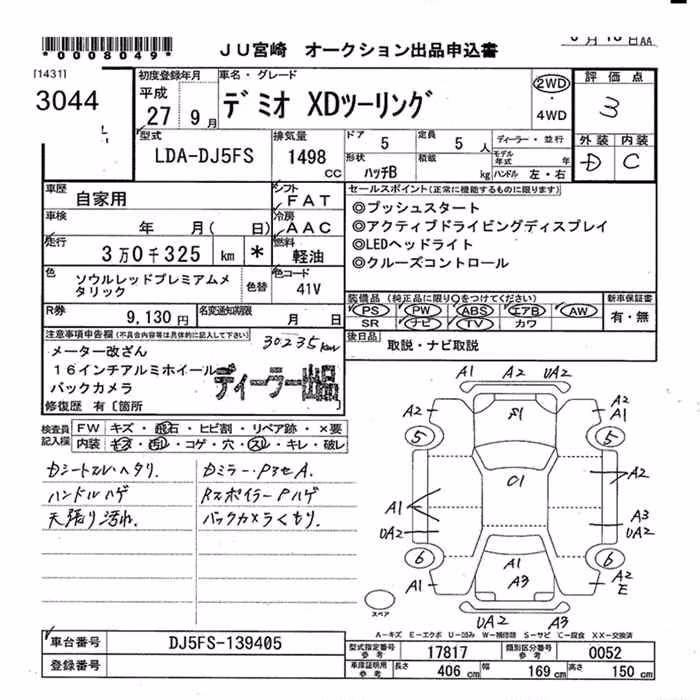 *0008049*
JU宮崎 オークション出品申込書
[1431]
3044
初度登録年月 車名・グレード
平成 27 9月
デミオ XDツーリング
2WD・4WD
評価点
3
外装 内装
D C
型式 排気量 ドア 5 定員 5人 ディーラー・並行
LDA-DJ5FS 1498cc 形状 ハッチB 積載 kg モデル年式 年
ハンドル 左・右
車歴 自家用 シフト FAT
車検 年 月( 日) 冷房 AAC
走行 3万0千325km * 燃料 軽油
色 ソウルレッドプレミアムメタリック 色替 色コード 41V
R券 9,130円 名変通知期限 月 日
セールスポイント(正常に機能するものに限ります)
◎プッシュスタート
◎アクティブドライビングディスプレイ
◎LEDヘッドライト
◎クルーズコントロール
装備品(純正品に限り○をつけてください) 新車保証書
PS PW ABS エアB AW 有・無
SR ナビ TV カワ
後日品 取説・ナビ取説
注意事項申告欄(不具合内容等は具体的に記入して下さい)
30235km
メーター改ざん
16インチアルミホイール
バックカメラ
ディーラー出品
修復歴 有[箇所 ]
検査員記入欄 FW キズ・飛石・ヒビ割・リペア跡・×要
内装 キズ・汚レ・コゲ・穴・スレ・キレ・破レ
Dシートスレヘタリ. Dミラー・PミセA.
ハンドルハゲ RスポイラーPハゲ
天張り汚れ. バックカメラくもり.
A1 A2 UA2
A2 F1 A2
A1
5 5
G1 A2
A1 A3
UA2 UA2
6 6
A1 A1 A2
A3 E
UA2 A3
スペア
A-キズ E-エクボ U-凹み W-補修跡 S-サビ C-腐食 XX-交換済
車台番号 DJ5FS-139405
登録番号
型式指定番号 参考 17817 類別区分番号 参考 0052
車庫証明用 参考 長さ 406cm 幅 169cm 高さ 150cm